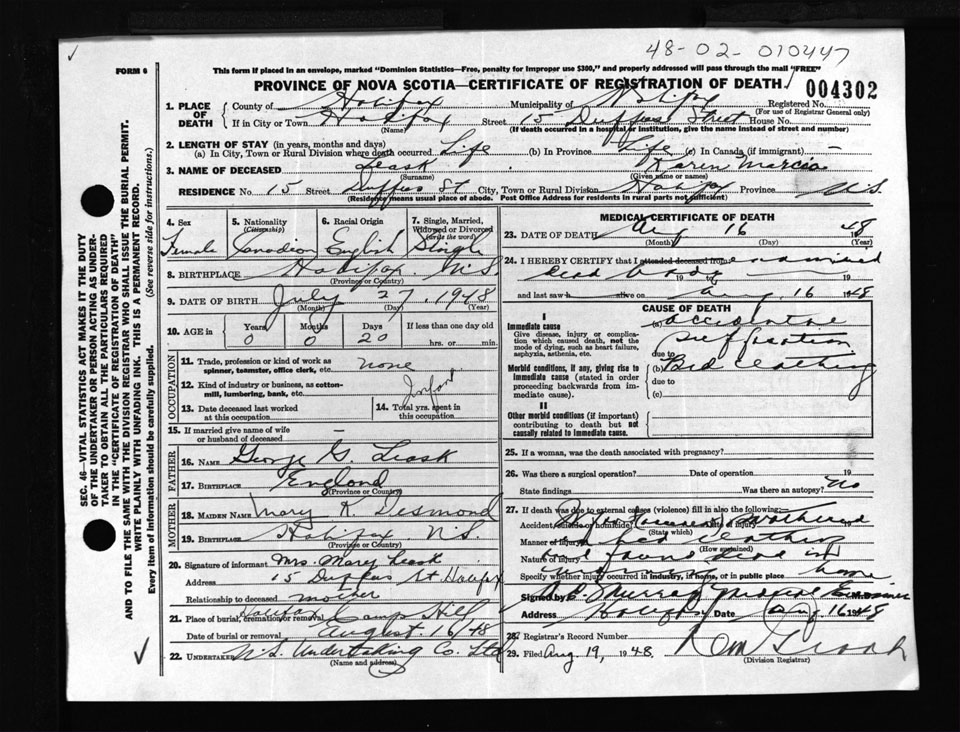 48-02-010447
FORM 6
This form if placed in an envelope, marked "Dominion Statistics—Free, penalty for improper use $300," and properly addressed will pass through the mail "FREE"
PROVINCE OF NOVA SCOTIA—CERTIFICATE OF REGISTRATION OF DEATH
004302
1. PLACE OF DEATH { County of Halifax Municipality of Halifax Registered No.
(For use of Registrar General only)
If in City or Town Halifax Street 15 Duffus Street House No.
(Name) (If death occurred in a hospital or institution, give the name instead of street and number)
2. LENGTH OF STAY (in years, months and days)
(a) In City, Town or Rural Division where death occurred Life (b) In Province Life (c) In Canada (if immigrant) —
3. NAME OF DECEASED Leask Karen Marcia
(Surname) (Given name or names)
RESIDENCE No. 15 Street Duffus St City, Town or Rural Division Halifax Province N.S.
(Residence means usual place of abode. Post Office Address for residents in rural parts not sufficient)
4. Sex
Female
5. Nationality (Citizenship)
Canadian
6. Racial Origin
English
7. Single, Married, Widowed or Divorced (write the word)
Single
8. BIRTHPLACE Halifax N.S.
(Province or Country)
9. DATE OF BIRTH July 27, 1948
(Month) (Day) (Year)
10. AGE in { Years Months Days If less than one day old
0 0 20 hrs. or min.
OCCUPATION
11. Trade, profession or kind of work as spinner, teamster, office clerk, etc. none
12. Kind of industry or business, as cotton-mill, lumbering, bank, etc. Infant
13. Date deceased last worked at this occupation
14. Total yrs. spent in this occupation
15. If married give name of wife or husband of deceased —
FATHER
16. NAME George G. Leask
17. BIRTHPLACE England
(Province or Country)
MOTHER
18. MAIDEN NAME Mary K. Desmond
19. BIRTHPLACE Halifax N.S.
(Province or Country)
20. Signature of informant Mrs. Mary Leask
Address 15 Duffus St. Halifax
Relationship to deceased mother
21. Place of burial, cremation or removal Halifax Camp Hill
Date of burial or removal August 16/48
22. UNDERTAKER N.S. Undertaking Co. Ltd
(Name and address)
MEDICAL CERTIFICATE OF DEATH
23. DATE OF DEATH Aug 16 48
(Month) (Day) (Year)
24. I HEREBY CERTIFY that I attended deceased from examined
dead body 19 to 19
and last saw h alive on Aug. 16 1948
CAUSE OF DEATH
I
Immediate cause
Give disease, injury or complication which caused death, not the mode of dying, such as heart failure, asphyxia, asthenia, etc.
(a) accidental
suffocation
due to
Morbid conditions, if any, giving rise to immediate cause (stated in order proceeding backwards from immediate cause).
(b) Bed clothing
due to
(c)
II
Other morbid conditions (if important) contributing to death but not causally related to immediate cause.
25. If a woman, was the death associated with pregnancy?
26. Was there a surgical operation? Date of operation 19
State findings Was there an autopsy? No
27. If death was due to external causes (violence) fill in also the following:
Accident, suicide or homicide Date of injury smothered
(State which)
Manner of injury in bed clothing
(How sustained)
Nature of injury and found dead in
Specify whether injury occurred in industry, in home, or in public place home
Signed by Murray Medical Examiner
Address Halifax Date Aug 16 1948
28. Registrar's Record Number
29. Filed Aug. 19, 1948.
(Division Registrar)
SEC. 46—VITAL STATISTICS ACT MAKES IT THE DUTY
OF THE UNDERTAKER OR PERSON ACTING AS UNDERTAKER TO OBTAIN ALL THE PARTICULARS REQUIRED
IN THE "CERTIFICATE OF REGISTRATION OF DEATH" AND TO FILE THE SAME WITH THE DIVISION REGISTRAR WHO SHALL ISSUE THE BURIAL PERMIT.
WRITE PLAINLY WITH UNFADING INK. THIS IS A PERMANENT RECORD.
Every item of information should be carefully supplied. (See reverse side for instructions.)